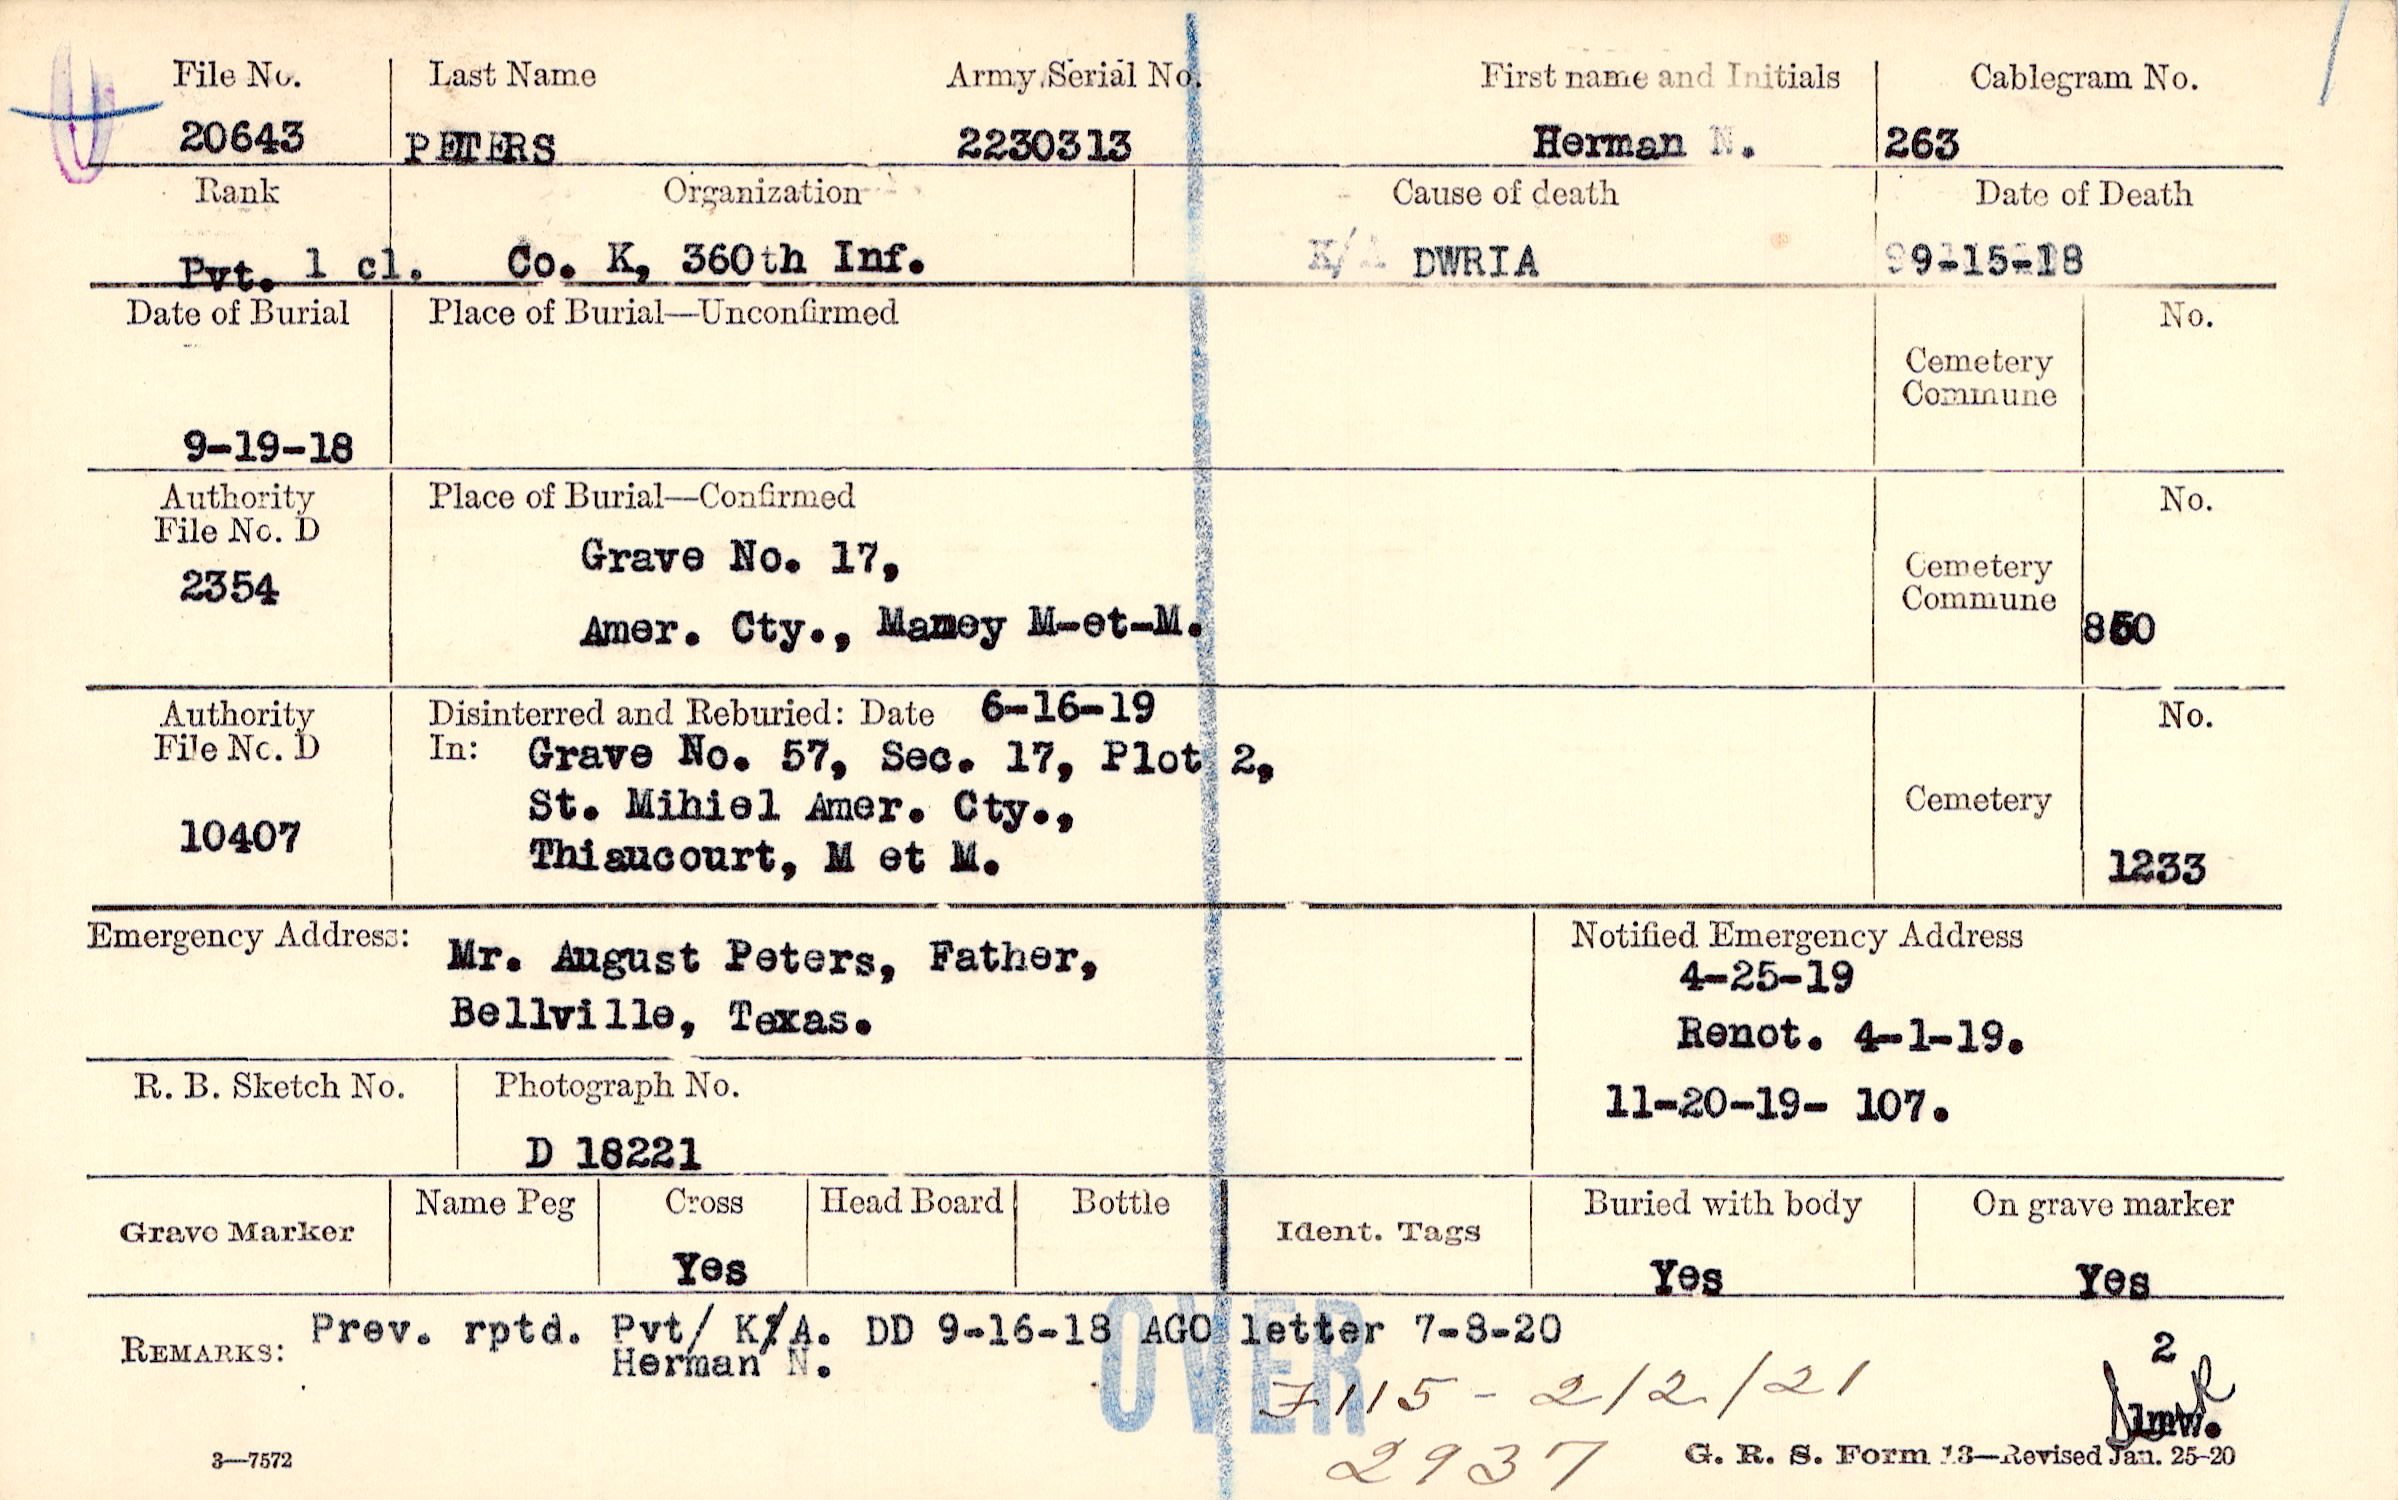 File No. Last Name Army Serial No. First name and Initials Cablegram No.
20643 PETERS 2230313 Herman N. 263
Rank Organization Cause of death Date of Death
Pvt. 1 cl. Co. K, 360th Inf. DWRIA 9-15-18
Date of Burial Place of Burial—Unconfirmed No.
Cemetery
Commune
9-19-18
Authority Place of Burial—Confirmed No.
File No. D
2354 Grave No. 17, Cemetery
Commune
Amer. Cty., Mamey M-et-M. 850
Authority Disinterred and Reburied: Date 6-16-19 No.
File No. D In: Grave No. 57, Sec. 17, Plot 2,
St. Mihiel Amer. Cty., Cemetery
10407 Thiaucourt, M et M. 1233
Emergency Address: Mr. August Peters, Father, Notified Emergency Address
4-25-19
Bellville, Texas. Renot. 4-1-19.
R. B. Sketch No. Photograph No. 11-20-19- 107.
D 18221
Grave Marker Name Peg Cross Head Board Bottle Ident. Tags Buried with body On grave marker
Yes Yes Yes
REMARKS: Prev. rptd. Pvt/ K/A. DD 9-16-18 AGO letter 7-8-20
Herman N. 2
OVER
F115 - 2/2/21
lmw.
2937
3—7572 G. R. S. Form 13—Revised Jan. 25-20